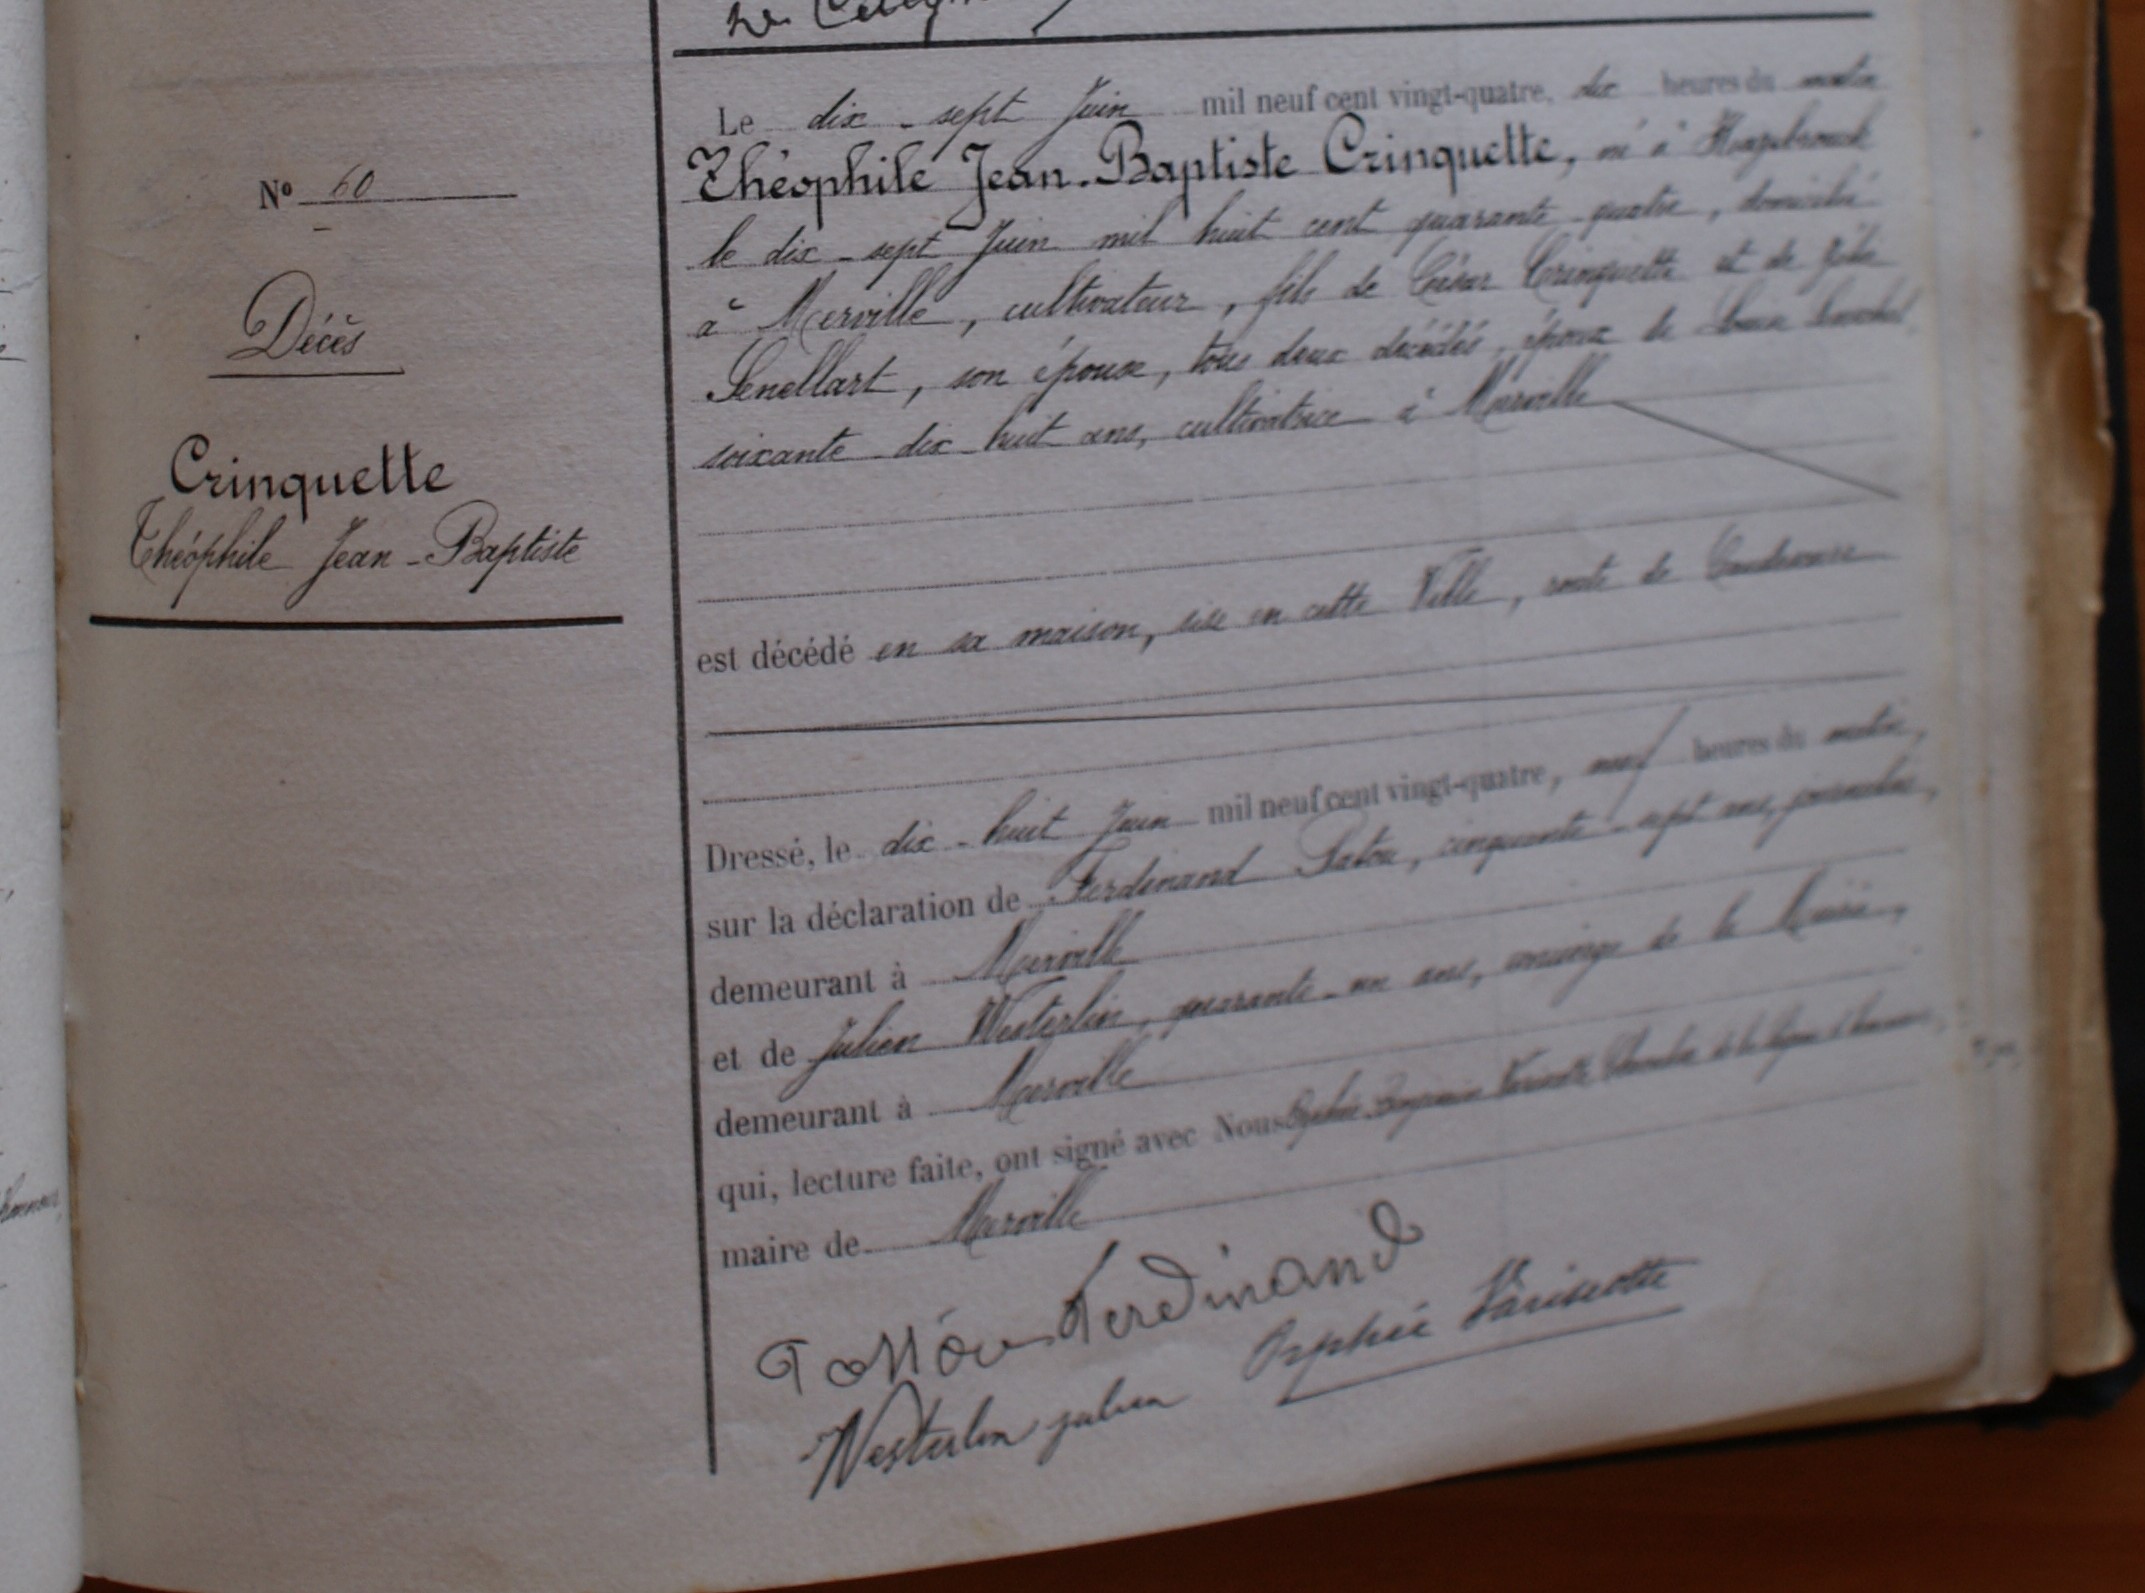 N° 60
Décès
Crinquette
Théophile Jean-Baptiste
Le dix-sept Juin mil neuf cent vingt-quatre, dix heures du matin
Théophile Jean-Baptiste Crinquette, né à Hazebrouck
le dix-sept Juin mil huit cent quarante-quatre, domicilié
à Merville, cultivateur, fils de César Crinquette et de
Senellart, son épouse, tous deux décédés, époux de
soixante-dix-huit ans, cultivatrice à Merville
est décédé en sa maison, sise en cette Ville, route de
Dressé, le dix-huit Juin mil neuf cent vingt-quatre, neuf heures du matin,
sur la déclaration de Ferdinand cinquante-sept ans, journalier,
demeurant à Merville
et de Julien Westerlin, quarante-un ans, concierge de la Mairie,
demeurant à Merville
qui, lecture faite, ont signé avec Nous Orphée Benjamin Varisotte Chevalier de la Légion d'honneur,
maire de Merville
Ferdinand
Orphée
Westerlin julien